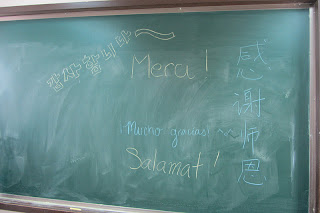 감사합니다~
Merci!
¡Mucho gracias! ~~
Salamat!
感谢师恩